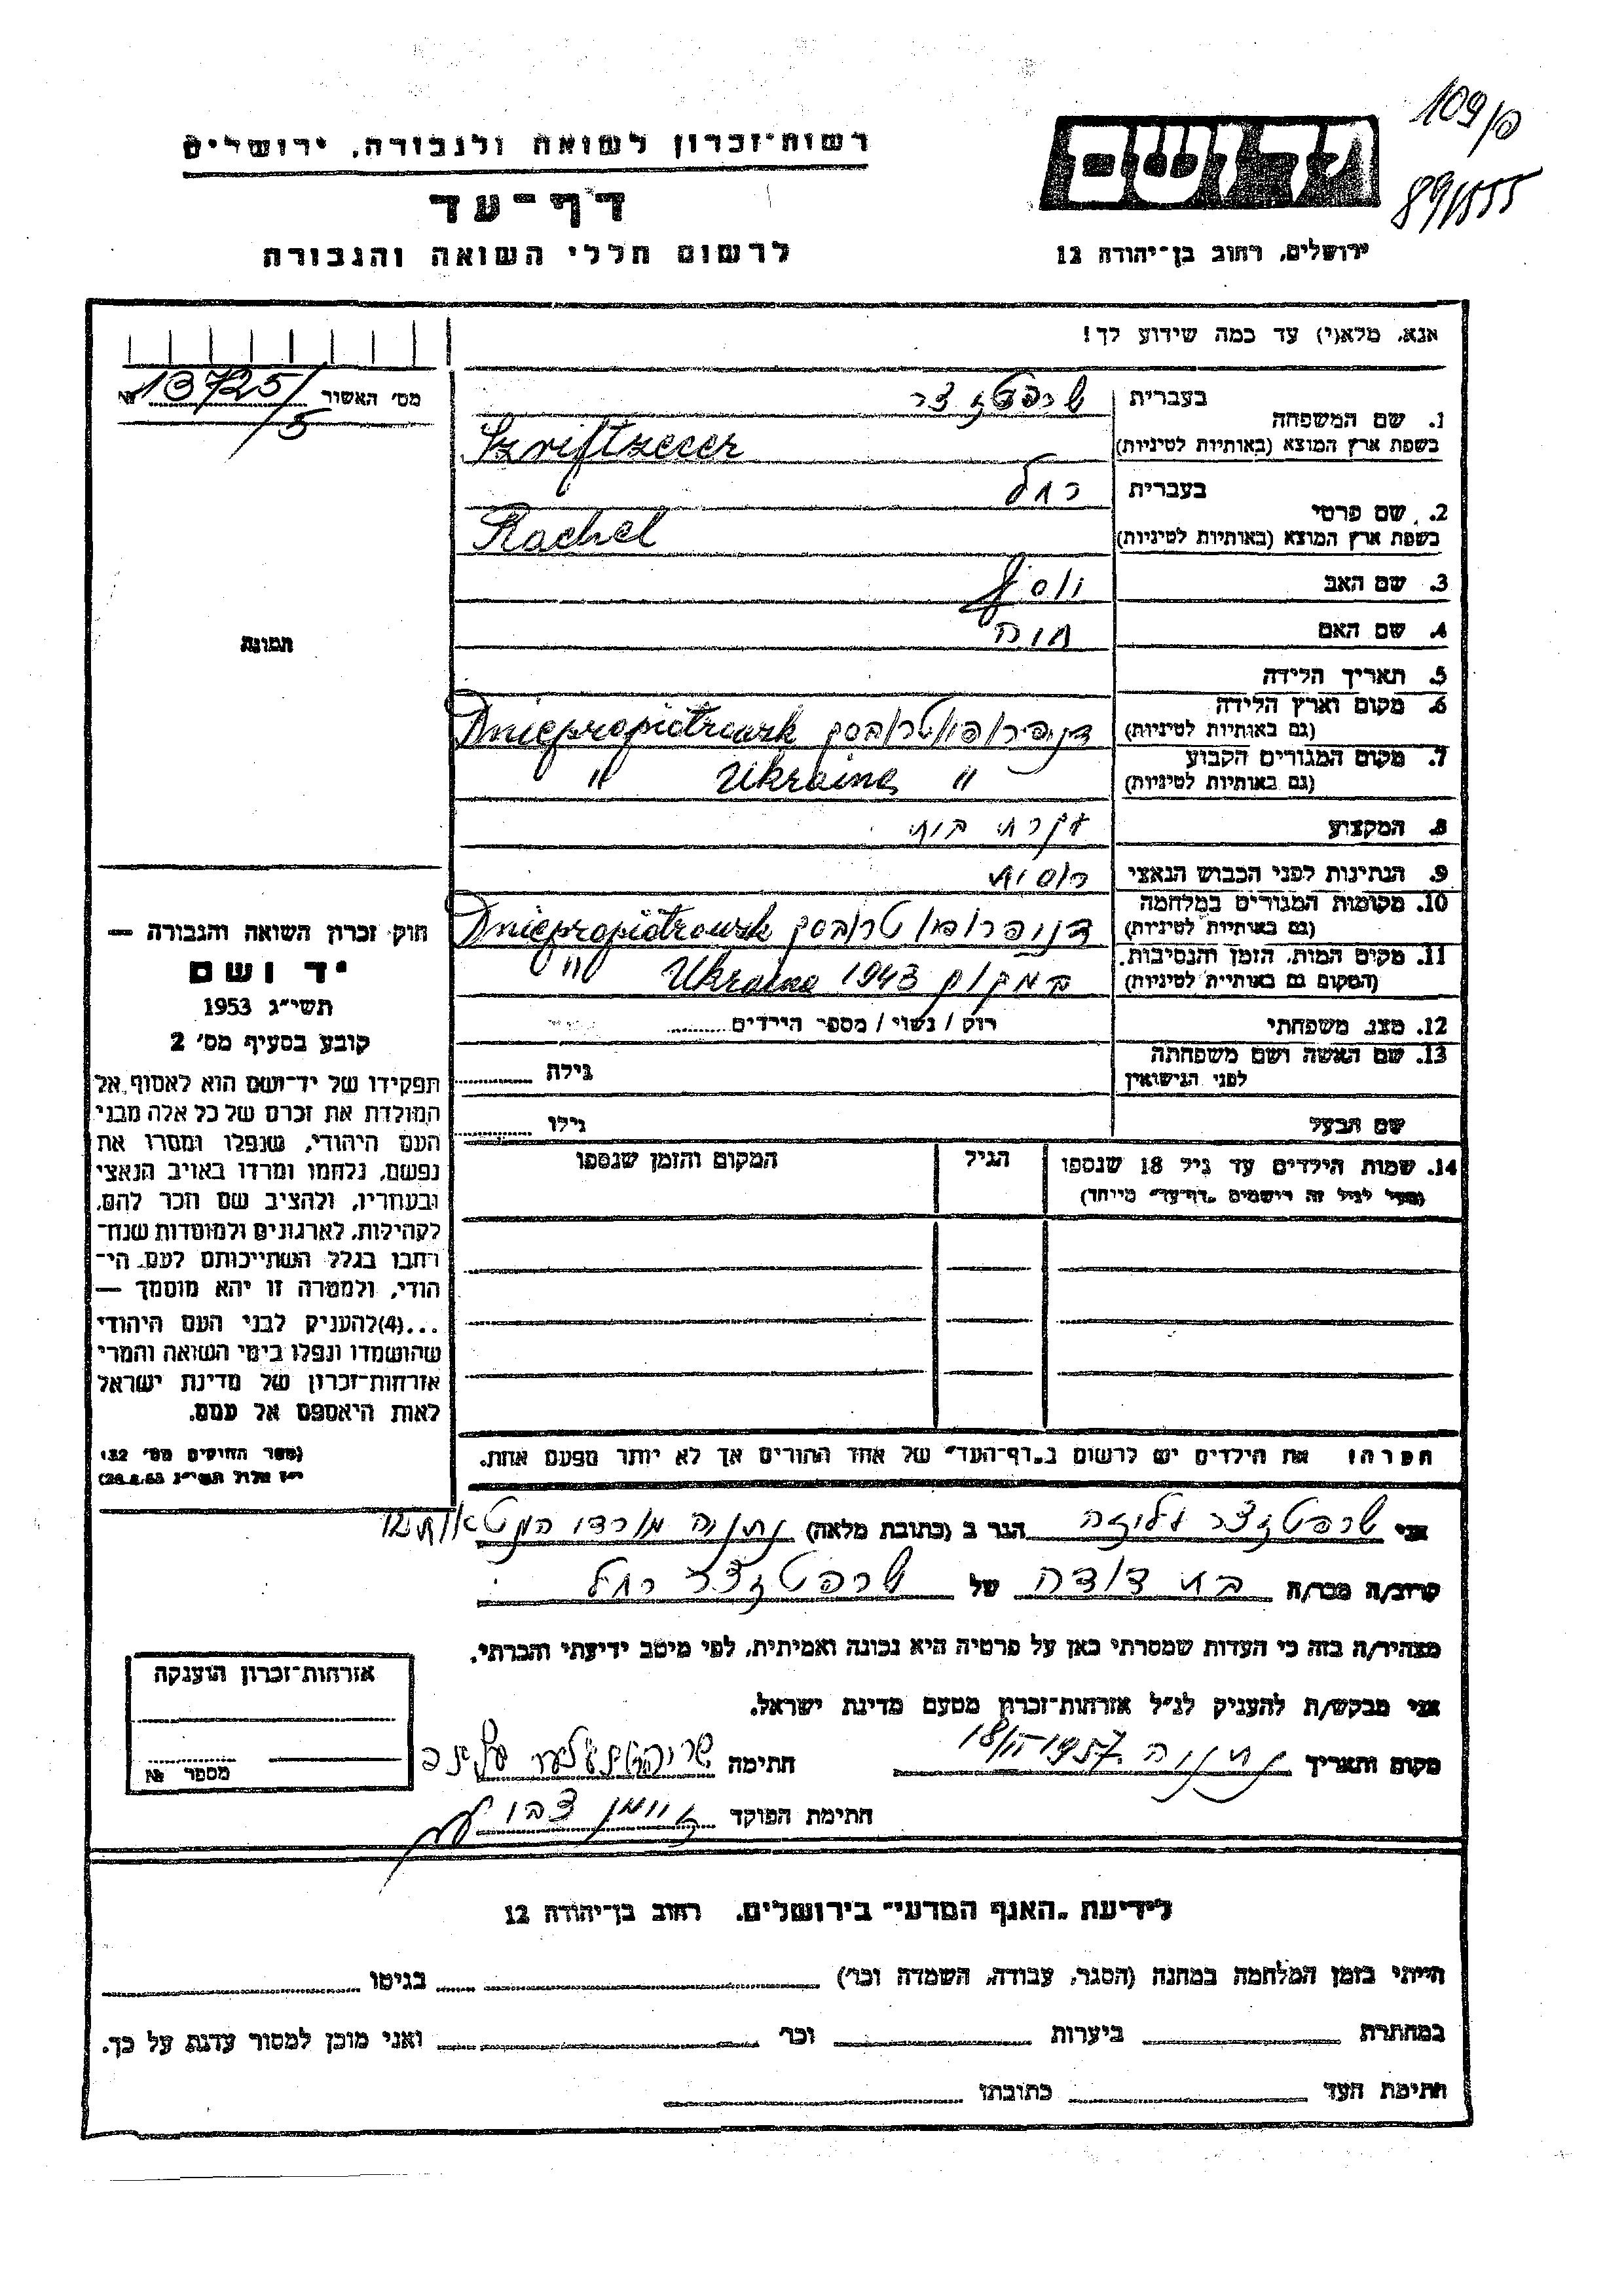 109/פ
89/1555
רשות־זכרון לשואה ולגבורה, ירושלים
דף־עד
לרשום חללי השואה והגבורה
יד ושם
ירושלים, רחוב בן־יהודה 12
אנא, מלא(י) עד כמה שידוע לך!
מס׳ האשור 13725/5 №
תמונה
1. שם המשפחה
בעברית שרפטזצר
בשפת ארץ המוצא (באותיות לטיניות) Szriftzecer
2. שם פרטי
בעברית רחל
בשפת ארץ המוצא (באותיות לטיניות) Rachel
3. שם האב יוסף
4. שם האם חוה
5. תאריך הלידה
6. מקום וארץ הלידה
(גם באותיות לטיניות) דניפרופיוטרובסק Dniepropiotrowsk
7. מקום המגורים הקבוע
(גם באותיות לטיניות) " Ukraina "
8. המקצוע עקרת בית
9. הנתינות לפני הכבוש הנאצי רוסית
10. מקומות המגורים במלחמה
(גם באותיות לטיניות) דניפרופיוטרובסק Dniepropiotrowsk
11. מקום המות, הזמן והנסיבות
(המקום גם באותיות לטיניות) במקום 1943 Ukraina "
12. מצב משפחתי רוק / נשוי / מספר הילדים
13. שם האשה ושם משפחתה
לפני הנישואין גילה
שם הבעל גילו
14. שמות הילדים עד גיל 18 שנספו הגיל המקום והזמן שנספו
(מעל לגיל זה רושמים „דף־עד״ מיוחד)
חוק זכרון השואה והגבורה —
יד ושם
תשי״ג 1953
קובע בסעיף מס׳ 2
תפקידו של יד־ושם הוא לאסוף אל
המולדת את זכרם של כל אלה מבני
העם היהודי, שנפלו ומסרו את
נפשם, נלחמו ומרדו באויב הנאצי
ובעוזריו, ולהציב שם וזכר להם,
לקהילות, לארגונים ולמוסדות שנח־
רבו בגלל השתייכותם לעם הי־
הודי, ולמטרה זו יהא מוסמך —
...(4) להעניק לבני העם היהודי
שהושמדו ונפלו בימי השואה והמרי
אזרחות־זכרון של מדינת ישראל
לאות היאספם אל עמם.
(ספר החוקים מס׳ 132
י״ז אלול תשי״ג 28.8.53)
הערה! את הילדים יש לרשום ב„דף־העד״ של אחד ההורים אך לא יותר מפעם אחת.
אני שרפטזצר עליזה הגר ב (כתובת מלאה) נתניה מורדי הגטאות
קרוב/ה מכר/ה בת דודה של שרפטזצר רחל
מצהיר/ה בזה כי העדות שמסרתי כאן על פרטיה היא נכונה ואמיתית, לפי מיטב ידיעתי והכרתי.
אני מבקש/ת להעניק לנ״ל אזרחות־זכרון מטעם מדינת ישראל.
מקום ותאריך נתניה 1957 חתימה
חתימת הפוקד
אזרחות־זכרון הוענקה
מספר №
לידיעת „האגף המדעי״ בירושלים, רחוב בן־יהודה 12
הייתי בזמן המלחמה במחנה (הסגר, עבודה, השמדה וכו׳) בגיטו
במחתרת ביערות וכו׳ ואני מוכן למסור עדות על כך.
חתימת העד כתובתו